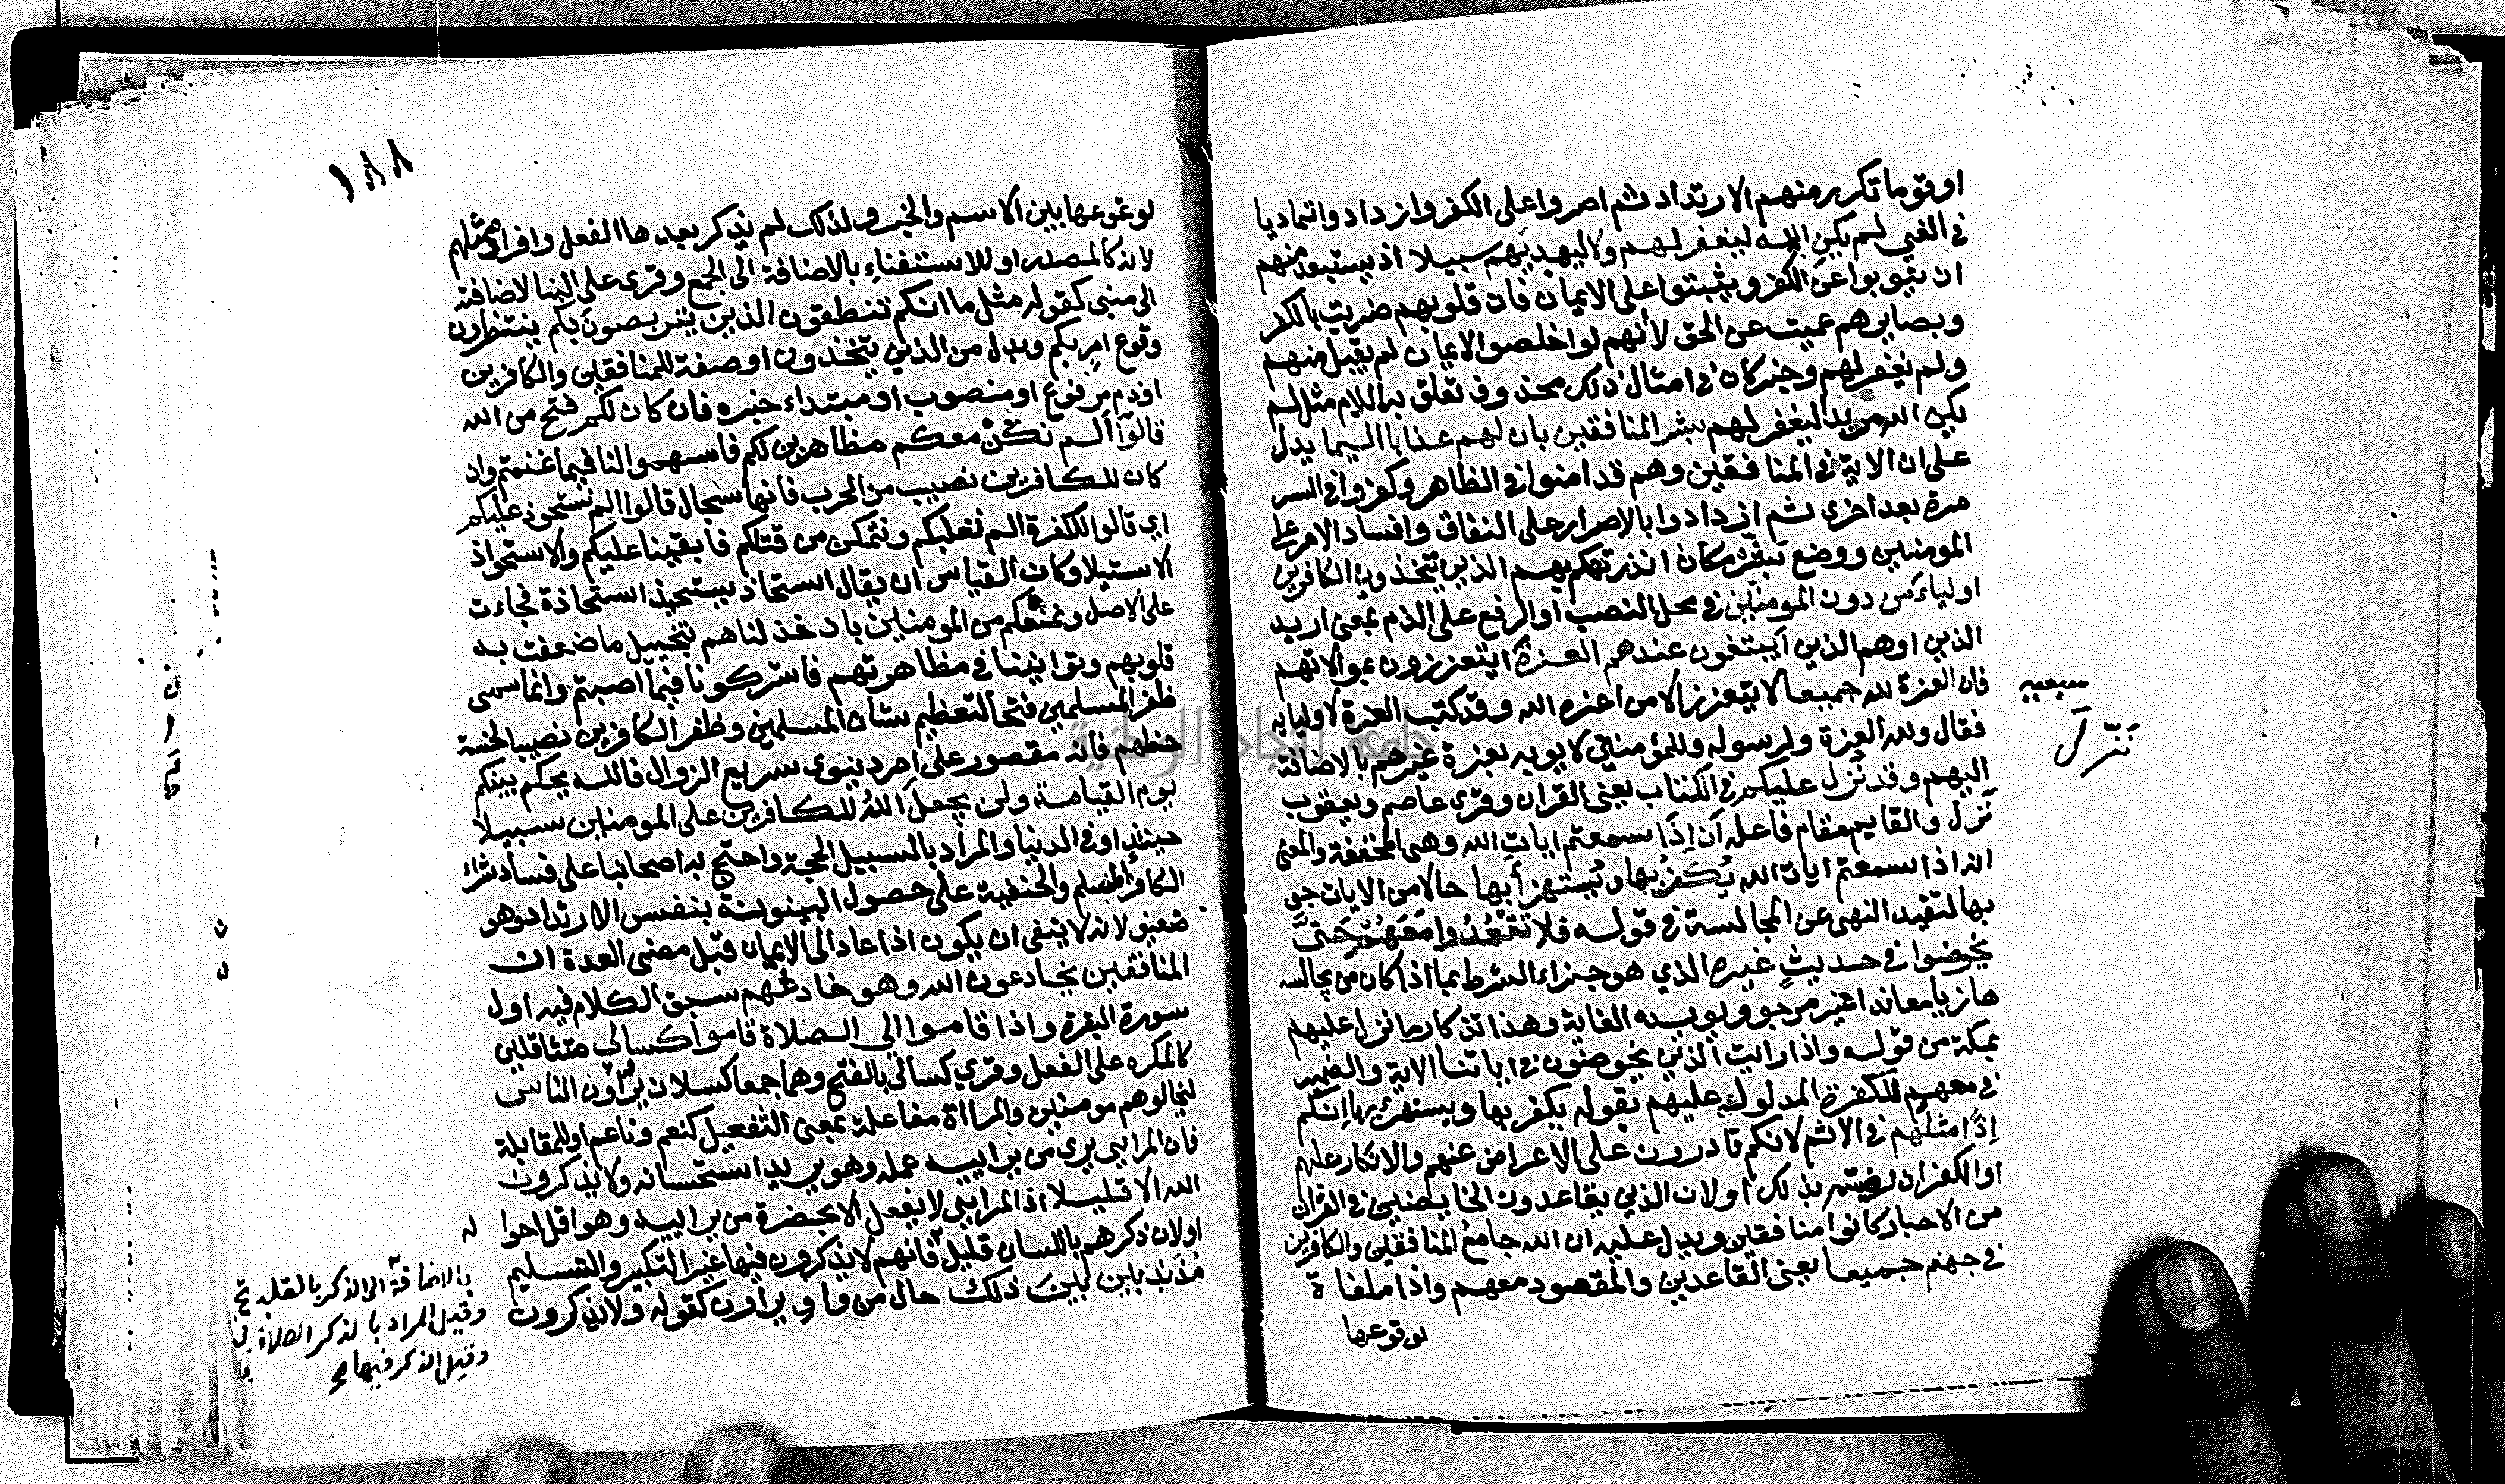 او قوما تكرر منهم الارتداد ثم اصروا على الكفر وازدادوا تماديا
في الغي لم يكن الله ليغفر لهم ولا ليهديهم سبيلا اذ يستبعد منهم
ان يتوبوا عن الكفر ويثبتوا على الايمان فان قلوبهم ضربت بالكفر
وبصايرهم عميت عن الحق لأنهم لو اخلصوا الايمان لم يقبل منهم
ولم يغفر لهم وخبر كان في امثال ذلك محذوف تعلق به اللام مثل لم
يكن الله مريدا ليغفر لهم بشر المنافقين بان لهم عذابا اليما يدل
على ان الاية في المنافقين وهم قد امنوا في الظاهر وكفروا في السر
مرة بعد اخرى ثم ازدادوا بالاصرار على النفاق وافساد الامر على
المومنين ووضع بشر مكان انذر تهكم بهم الذين يتخذون الكافرين
اولياء من دون المومنين في محل النصب او الرفع على الذم بمعنى اريد
الذين او هم الذين أيبتغون عندهم العزة ايتعززون بموالاتهم
فان العزة لله جميعا لا يتعزز الا من اعزه الله وقد كتب العزة لأوليايه
فقال ولله العزة ولرسوله وللمؤمنين لا يوبه بعزة غيرهم بالاضافة
اليهم وقد نُزل عليكم في الكتاب يعني القران وقرى عاصم ويعقوب
نَزل والقايم مقام فاعله أن إذا سمعتم ايات الله وهي المخففة والمعنى
انه اذا سمعتم ايات الله يُكفر بها ويُستهزأ بها حالا من الايات جي
بها لتقيد النهي عن المجالسة في قوله فلا تقعدوا معهم حتى
يخوضوا في حديث غيره الذي هو جزاء الشرط بما اذا كان من يجالسه
هازيا معاندا غير مرجو ويويده الغاية وهذا تذكار ما نزل عليهم
بمكة من قوله واذا رايت الذين يخوضون في اياتنا الاية والضمير
في معهم للكفرة المدلول عليهم بقوله يكفر بها ويستهزئ بها إنكم
إذًا مثلهم في الاثم لانكم قادرون على الاعراض عنهم والانكار عليهم
او الكفر ان رضيتم بذلك أو لان الذين يقاعدون الخايضين في القران
من الاحبار كانوا منافقين ويدل عليه ان الله جامع المنافقين والكافرين
في جهنم جميعا يعني القاعدين والمقصود معهم واذا ملغاة
لوقوعها
نَزّل
١٨٨
لوقوعها بين الاسم والخبر ولذلك لم يذكر بعدها الفعل وافراد مثلهم
لانه كالمصدر او للاستغناء بالاضافة الى الجمع وقرى على البنا لاضافته
الى مبنى كقوله مثل ما انكم تنطقون الذين يتربصون بكم ينتظرون
وقوع امر بكم وبدل من الذين يتخذون او صفة للمنافقين والكافرين
او ذم مرفوع او منصوب او مبتداء خبره فان كان لكم فتح من الله
قالوا ألم نكن معكم مظاهرين لكم فاسهموا لنا فيما غنمتم وان
كان للكافرين نصيب من الحرب فانها سجال قالوا الم نستحوذ عليكم
اي قالوا للكفرة الم نغلبكم ونتمكن من قتلكم فابقينا عليكم والاستحواذ
الاستيلا وكان القياس ان يقال استحاذ يستحيذ استحاذة فجاءت
على الاصل ونمنعكم من المومنين بان خذلناهم بتخييل ما ضعفت به
قلوبهم وتوانينا في مظاهرتهم فاشركونا فيما اصبتم وانما سمى
ظفر المسلمين فتحا لتعظيم شان المسلمين وظفر الكافرين نصيبا لخسة
حظهم فانه مقصور على امر دنيوي سريع الزوال فالله يحكم بينكم
يوم القيامة ولن يجعل اللهُ للكافرين على المومنين سبيلا
حينئذٍ او في الدنيا والمراد بالسبيل الحجة واحتج به اصحابنا على فساد شراء
الكافر المسلم والحنفية على حصول البينونة بنفس الارتداد وهو
ضعيف لانه لا ينفي ان يكون اذا عاد الى الايمان قبل مضى العدة ان
المنافقين يخادعون الله وهو خادعهم سبق الكلام فيه اول
سورة البقرة واذا قاموا الى الصلاة قاموا كسالى متثاقلين
كالمكره على الفعل وقرى كسالى بالفتح وهما جمعا كسلان يرٌاون الناس
ليخالوهم مومنين والمرااة مفاعلة بمعنى التفعيل كنعم وناعم او للمقابلة
فان المرايي يرى من يراييه عمله وهو يريد استحسانه ولا يذكرون
الله الا قليلا اذ المرايي لا يفعل الا بحضرة من يراييه وهو اقل احوا
له
او لان ذكرهم باللسان قليل فانهم لا يذكرون فيها غير التكبير والتسليم
مذبذبين بين ذلك حال من واو يراون كقوله ولا يذكرون
بالاضافة الى الذكر بالقلب
وقيل المراد بالذكر الصلاة
وقيل الذكر فيها
جامعة النجاح الوطنية